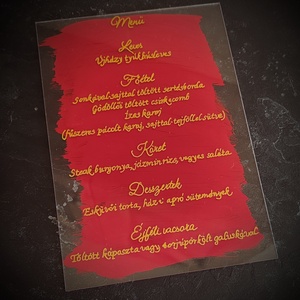 Menü
Leves
Újházy tyúkhúsleves
Főétel
Sonkával sajttal töltött sertésborda
Gödöllői töltött csirkecomb
Ízes karaj
(Fűszeres pácolt karaj, sajttal tejföllel sütve)
Köret
Steak burgonya, jázmin rizs, vegyes saláta
Desszertek
Esküvői torta, házi apró sütemények
Éjféli vacsora
Töltött káposzta vagy borjúpörkölt galuskával